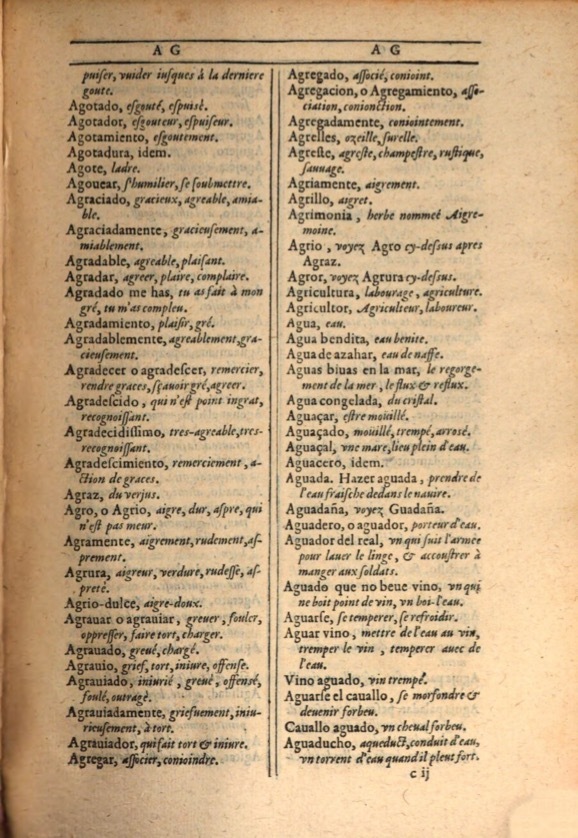 A G
puiser, vuider iusques à la derniere
goute.
Agotado, esgouté, espuisè.
Agotador, esgouteur, espuiseur.
Agotamiento, esgoutement.
Agotadura, idem.
Agote, ladre.
Agouear, s'humilier, se soubmettre.
Agraciado, gracieux, agreable, amia-
ble.
Agraciadamente, gracieusement, a-
miablement.
Agradable, agreable, plaisant.
Agradar, agreer, plaire, complaire.
Agradado me has, tu as fait à mon
gré, tu m'as compleu.
Agradamiento, plaisir, gré.
Agradablemente, agreablement, gra-
cieusement.
Agradecer o agradescer, remercier,
rendre graces, sçauoir gré, agreer.
Agradescido, qui n'est point ingrat,
recognoissant.
Agradecidissimo, tres-agreable, tres-
recognoissant.
Agradescimiento, remerciement, a-
ction de graces.
Agraz, du verjus.
Agro, o Agrio, aigre, dur, aspre, qui
n'est pas meur.
Agramente, aigrement, rudement, as-
prement.
Agrura, aigreur, verdure, rudesse, as-
preté.
Agrio-dulce, aigre-doux.
Agrauar o agrauiar, greuer, fouler,
oppresser, faire tort, charger.
Agrauado, greué, chargé.
Agrauio, grief, tort, iniure, offense.
Agrauiado, iniurié, greué, offensé,
foulé, outragè.
Agrauiadamente, griefuement, iniu-
rieusement, à tort.
Agrauiador, qui fait tort & iniure.
Agregar, associer, conioindre.
A G
Agregado, associé, conioint.
Agregacion, o Agregamiento, asso-
ciation, conionction.
Agregadamente, coniointement.
Agrelles, ozeille, surelle.
Agreste, agreste, champestre, rustique,
sauuage.
Agriamente, aigrement.
Agrillo, aigret.
Agrimonia, herbe nommeé Aigre-
moine.
Agrio, voyez Agro cy-dessus apres
Agraz.
Agror, voyez Agrura cy-dessus.
Agricultura, labourage, agriculture.
Agricultor, Agriculteur, laboureur.
Agua, eau.
Agua bendita, eau benite.
Agua de azahar, eau de naffe.
Aguas biuas en la mar, le regorge-
ment de la mer, le flux & reflux.
Agua congelada, du cristal.
Aguaçar, estre mouillé.
Aguaçado, mouillé, trempé, arrosé.
Aguaçal, vne mare, lieu plein d'eau.
Aguacero, idem.
Aguada. Hazer aguada, prendre de
l'eau fraische dedans le nauire.
Aguadaña, voyez Guadaña.
Aguadero, o aguador, porteur d'eau.
Aguador del real, vn qui suit l'armee
pour lauer le linge, & accoustrer à
manger aux soldats.
Aguado que no beue vino, vn qui
ne boit point de vin, vn boi-l'eau.
Aguarse, se temperer, se refroidir.
Aguar vino, mettre de l'eau au vin,
tremper le vin, temperer auec de
l'eau.
Vino aguado, vin trempé.
Aguarse el cauallo, se morfondre &
deuenir forbeu.
Cauallo aguado, vn cheual forbeu.
Aguaducho, aqueduct, conduit d'eau,
vn torrent d'eau quand il pleut fort.
c ij